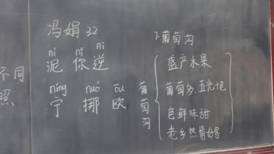 冯娟 32
不同
照
nì nǐ nì
泥 你 逆
níng nuó ōu
宁 挪 欧
葡萄沟
2葡萄沟
盛产水果
葡萄多
色鲜味甜
老乡热情好客